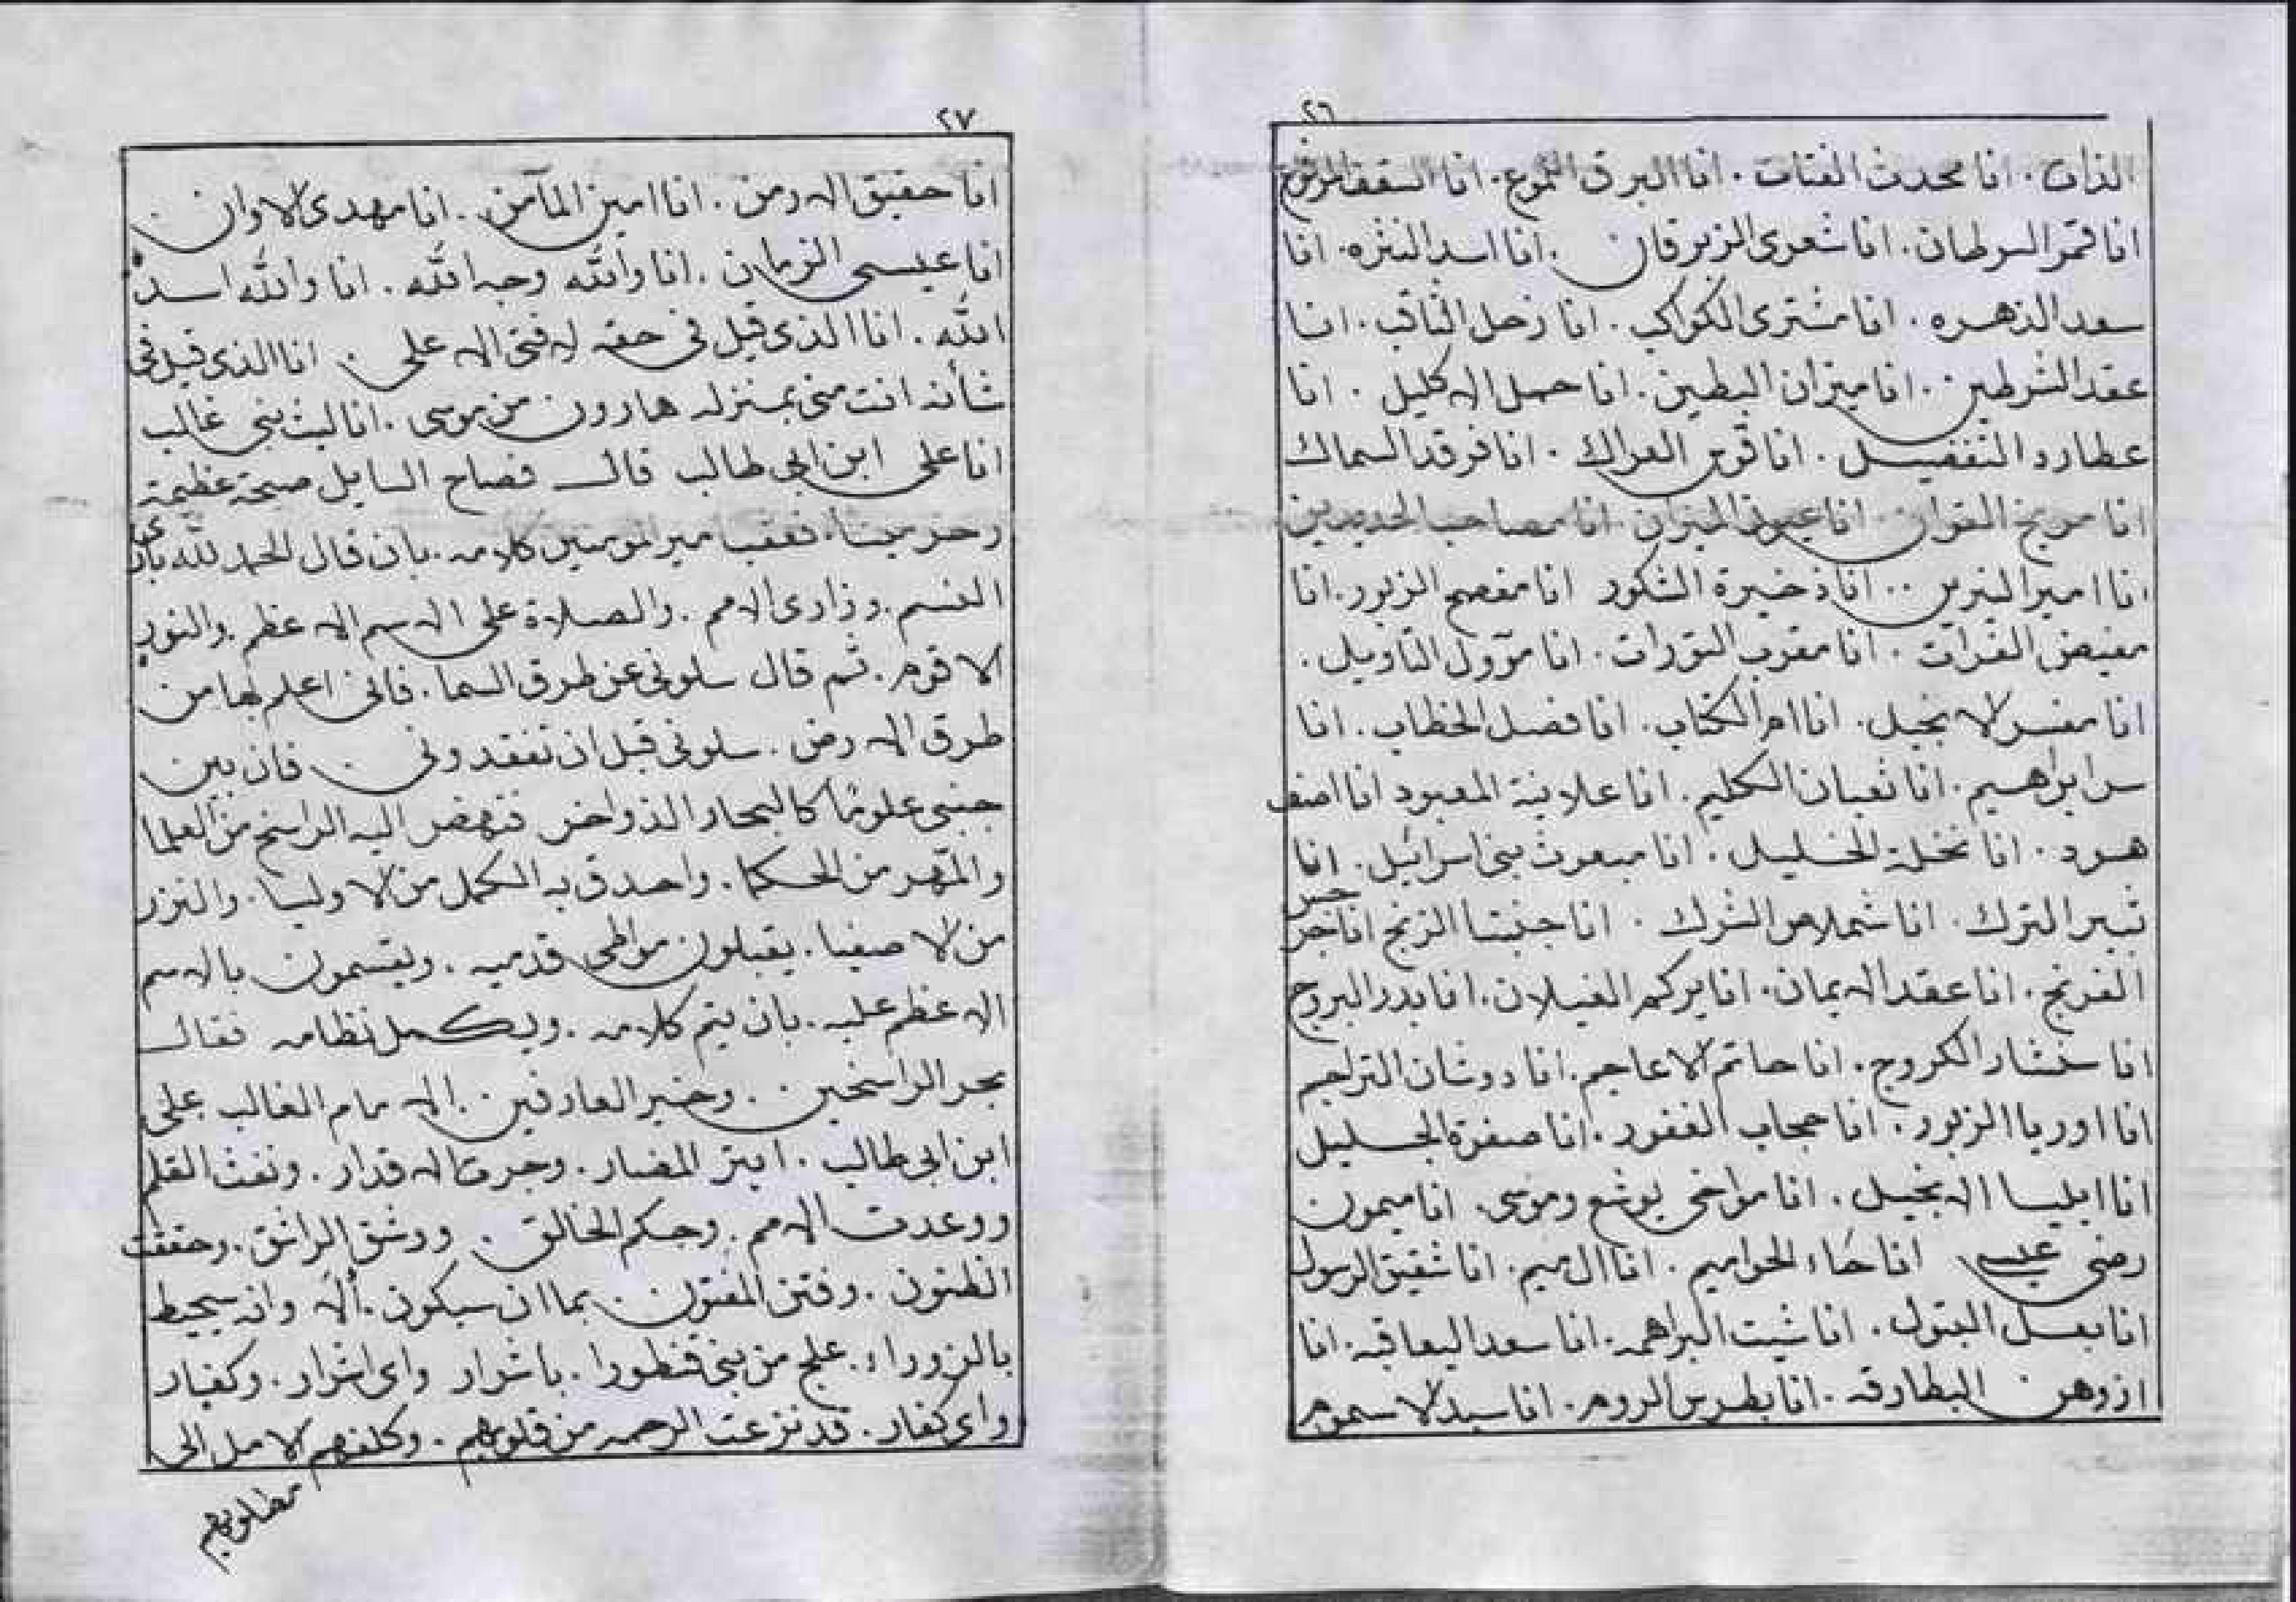 ٢٦
الذات . انا محدث الفتات . انا البرق اللموع . انا السقف المرفوع
انا قمر السرطان . انا شعرى الزبرقان . انا اسد النثره . انا
سعد الزهره . انا مشترى الكواكب . انا زحل الثاقب . انا
عقد الشرطين . انا ميزان البطين . انا حمل الاكليل . انا
عطارد التفضيل . انا قوس العراك . انا فرقد السماك
انا مريخ القران . انا عيوق الميزان . انا مصاحب الجديدين
انا امير النيرين .. انا ذخيرة الشكور انا مفصح الزبور . انا
مفيض الفرات . انا مقرب التورات . انا مؤول التاويل .
انا مفسر الانجيل . انا ام الكتاب . انا فصل الخطاب . انا
سر ابراهيم . انا ثعبان الكليم . انا علانية المعبود انا اصف
هود . انا نخلة الخليل . انا مبعوث بنى اسرائيل . انا
تبير الترك . انا شملاص الشرك . انا جنبثا الزنج انا جرجس
الفرنج . انا عقد الايمان . انا بركم الغيلان . انا بدر البروج
انا شنشار الكروج . انا حاتم الاعاجم . انا دوشان التراجم
انا اوريا الزبور . انا حجاب الغفور . انا صفوة الجليل
انا ايليا الانجيل . انا مواخى يوشع وموسى . انا ميمون
رضى عيسى انا حاء الحواميم . انا ال ميم . انا شقيق الرسول
انا بعل البتول . انا شيت البراهمه . انا سعد اليعاقبه . انا
ازوهن البطارقه . انا بطرس الروم . انا سيد الاسموم
٢٧
انا حقيق الارمن . انا امين المآمن . انا مهدى الاوان
انا عيسى الزمان . انا والله وجه الله . انا والله اسد
الله . انا الذى قيل فى حقه لا فتى الا على . انا الذى قيل فى
شأنه انت منى بمنزله هارون من موسى . انا ليث بنى غالب
انا على ابن ابى طالب قال فصاح السايل صيحة عظيمة
وخر ميتا . فعقب امير المومنين كلامه . بان قال الحمد لله بارى
النسم . وزارى الامم . والصلاة على الاسم الاعظم . والنور
الاقوم . ثم قال سلونى عن طرق السما . فانى اعلم بها من
طرق الارض . سلونى قبل ان تفقدونى . فان بين
جنبى علوما كالبحار الذواخر فنهض اليه الراسخ من العلما
والمهر من الحكما . واحدق به الكمل من الاوليا . والنزر
من الاصفيا . يقبلون مواطى قدميه . ويقسمون بالاسم
الاعظم عليه . بان يتم كلامه . ويكمل نظامه فقال
بحر الراسخين . وخير العارفين . الامام الغالب على
ابن ابى طالب . ابتر المضار . وجرت الاقدار . ونفث القلم
ووعدت الامم . وحكم الخالق . ورشق الراشق . وحققت
الظنون . وفتن المفتون . بما ان سيكون . ألا وانه سيحيط
بالزوراء . علج من بنى قنطورا . باشرار واى اشرار . وكفار
واى كفار . قد نزعت الرحمه من قلوبهم . وكلفهم الامل الى
مطلوبهم